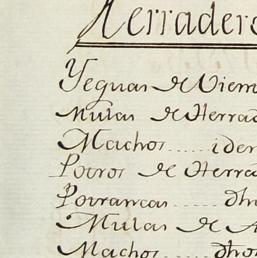 Herradero
Yeguas de Viem
Mulas de Herrad
Machos..... iden
Potros de Herra
Potrancas..... dho
Mulas de A
Machos.... dhos